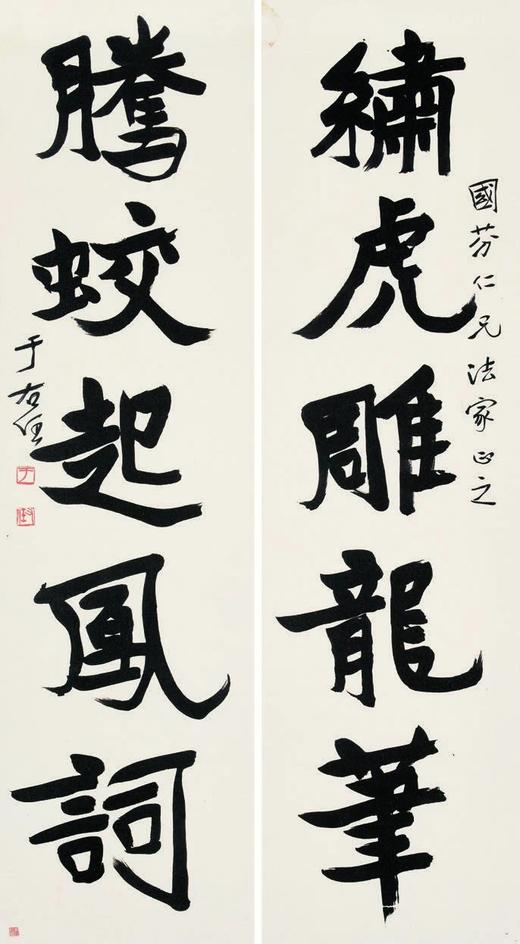 繡虎雕龍筆
國芬仁兄法家正之
騰蛟起鳳詞
于右任